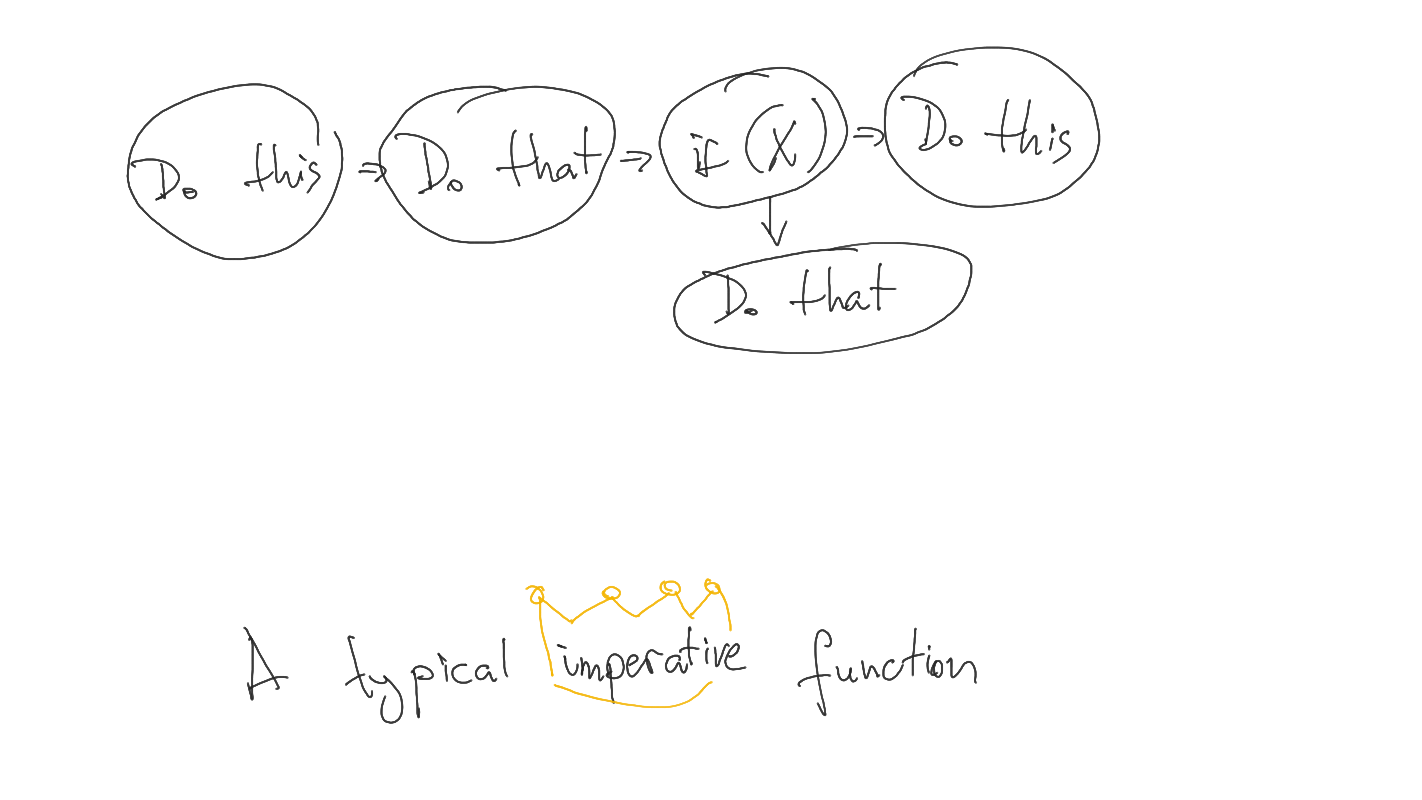 Do this ⇒ Do that ⇒ if (X) ⇒ Do this
Do that
A typical imperative function